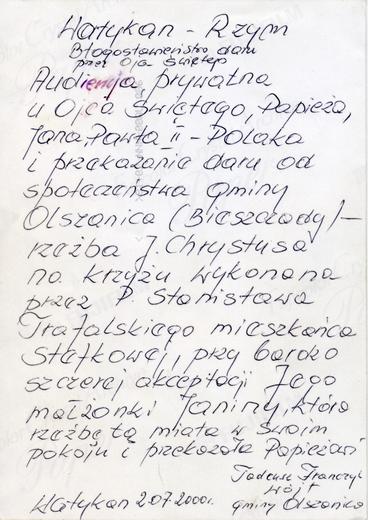 Watykan - Rzym
Błogosławieństwo daru
przez Ojca Świętego
Audiencja prywatna
u Ojca Świętego, Papieża,
Jana Pawła II - Polaka
i przekazanie daru od
społeczeństwa gminy
Olszanica (Bieszczady) -
rzeźba J. Chrystusa
na krzyżu wykonana
przez P. Stanisława
Trafalskiego mieszkańca
Stefkowej, przy bardzo
szczerej akceptacji Jego
małżonki Janiny, która
rzeźbę tą miała w swoim
pokoju i przekazała Papieżowi
Tadeusz Franczyk
Wójt
gminy Olszanica
Watykan 2.07.2000r.